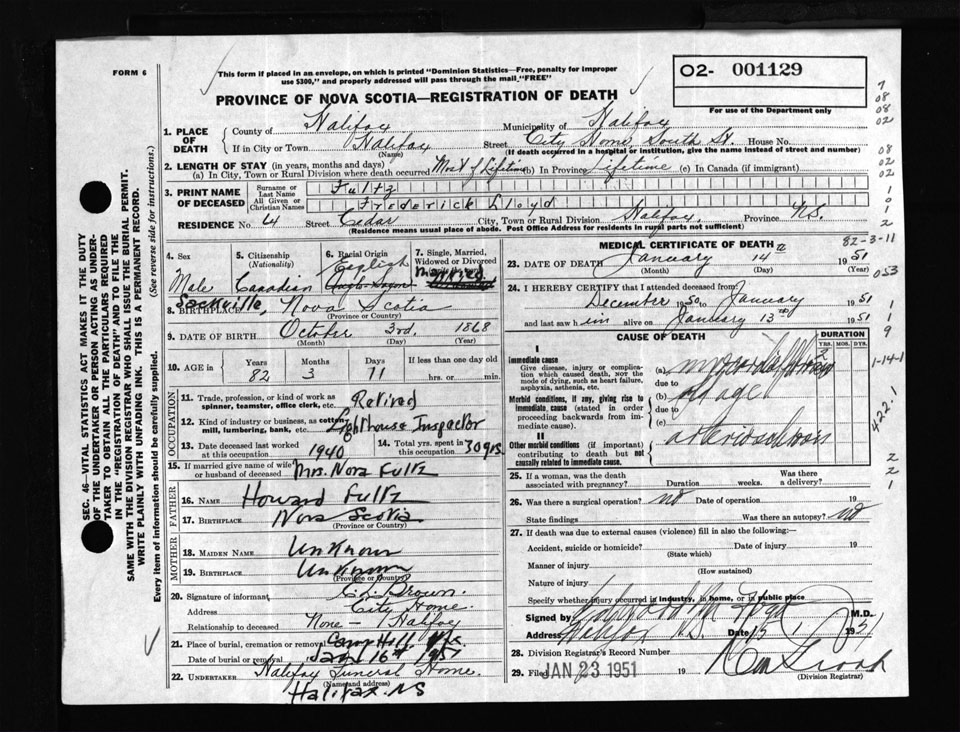 FORM 6
This form if placed in an envelope, on which is printed "Dominion Statistics—Free, penalty for improper
use $300," and properly addressed will pass through the mail "FREE"
O2- 001129
For use of the Department only
PROVINCE OF NOVA SCOTIA—REGISTRATION OF DEATH
1. PLACE OF DEATH
County of Halifax Municipality of Halifax
If in City or Town Halifax Street City Home, South St. House No.
(Name) (If death occurred in a hospital or institution, give the name instead of street and number)
2. LENGTH OF STAY (in years, months and days)
(a) In City, Town or Rural Division where death occurred Most of Lifetime (b) In Province Lifetime (c) In Canada (if immigrant)
3. PRINT NAME OF DECEASED
Surname or Last Name Fultz
All Given or Christian Names Frederick Lloyd
RESIDENCE No. 4 Street Cedar City, Town or Rural Division Halifax, Province N.S.
(Residence means usual place of abode. Post Office Address for residents in rural parts not sufficient)
4. Sex Male
5. Citizenship (Nationality) Canadian
6. Racial Origin English
7. Single, Married, Widowed or Divorced
Married
8. BIRTHPLACE Sackville, Nova Scotia
(Province or Country)
9. DATE OF BIRTH October 3rd, 1868
(Month) (Day) (Year)
10. AGE in Years 82 Months 3 Days 11 If less than one day old
hrs. or min.
OCCUPATION
11. Trade, profession, or kind of work as spinner, teamster, office clerk, etc. Retired
12. Kind of industry or business, as cotton mill, lumbering, bank, etc. Lighthouse Inspector
13. Date deceased last worked at this occupation 1940
14. Total yrs. spent in this occupation 30 yrs.
15. If married give name of wife or husband of deceased Mrs. Nora Fultz
FATHER
16. NAME Howard Fultz
17. BIRTHPLACE Nova Scotia
(Province or Country)
MOTHER
18. MAIDEN NAME Unknown
19. BIRTHPLACE Unknown
(Province or Country)
20. Signature of informant Brown.
Address City Home.
Relationship to deceased None — Halifax
21. Place of burial, cremation or removal Camp Hill
Date of burial or removal Jan 16th 1951
22. UNDERTAKER Halifax Funeral Home.
(Name and address)
Halifax. NS
MEDICAL CERTIFICATE OF DEATH
82-3-11
23. DATE OF DEATH January 14th 1951
(Month) (Day) (Year)
24. I HEREBY CERTIFY that I attended deceased from:
December 1950 to January 1951
and last saw him alive on January 13th 1951
CAUSE OF DEATH
DURATION
YRS. MOS. DYS.
I
Immediate cause
Give disease, injury or complication which caused death, NOT the mode of dying, such as heart failure, asphyxia, asthenia, etc.
(a)
due to
Morbid conditions, if any, giving rise to immediate cause (stated in order proceeding backwards from immediate cause)
(b) old age
due to
(c)
II
Other morbid conditions (if important) contributing to death but not causally related to immediate cause.
25. If a woman, was the death associated with pregnancy? Duration weeks. Was there a delivery?
26. Was there a surgical operation? no Date of operation 19
State findings Was there an autopsy? no
27. If death was due to external causes (violence) fill in also the following:
Accident, suicide or homicide? Date of injury 19
(State which)
Manner of injury
(How sustained)
Nature of injury
Specify whether injury occurred in industry, in home, or in public place
Signed by M.D.
Address Halifax N.S. Date 15 1 1951
28. Division Registrar's Record Number
29. Filed JAN 23 1951 19
(Division Registrar)
SEC. 46—VITAL STATISTICS ACT MAKES IT THE DUTY
OF THE UNDERTAKER OR PERSON ACTING AS UNDERTAKER TO OBTAIN ALL THE PARTICULARS REQUIRED
IN THE "REGISTRATION OF DEATH" AND TO FILE THE
SAME WITH THE DIVISION REGISTRAR WHO SHALL ISSUE THE BURIAL PERMIT.
WRITE PLAINLY WITH UNFADING INK. THIS IS A PERMANENT RECORD.
Every item of information should be carefully supplied. (See reverse side for instructions.)
7
08
08
02
08
02
02
1
0
1
2
053
1
1
9
1-14-1
422-1
2
2
1